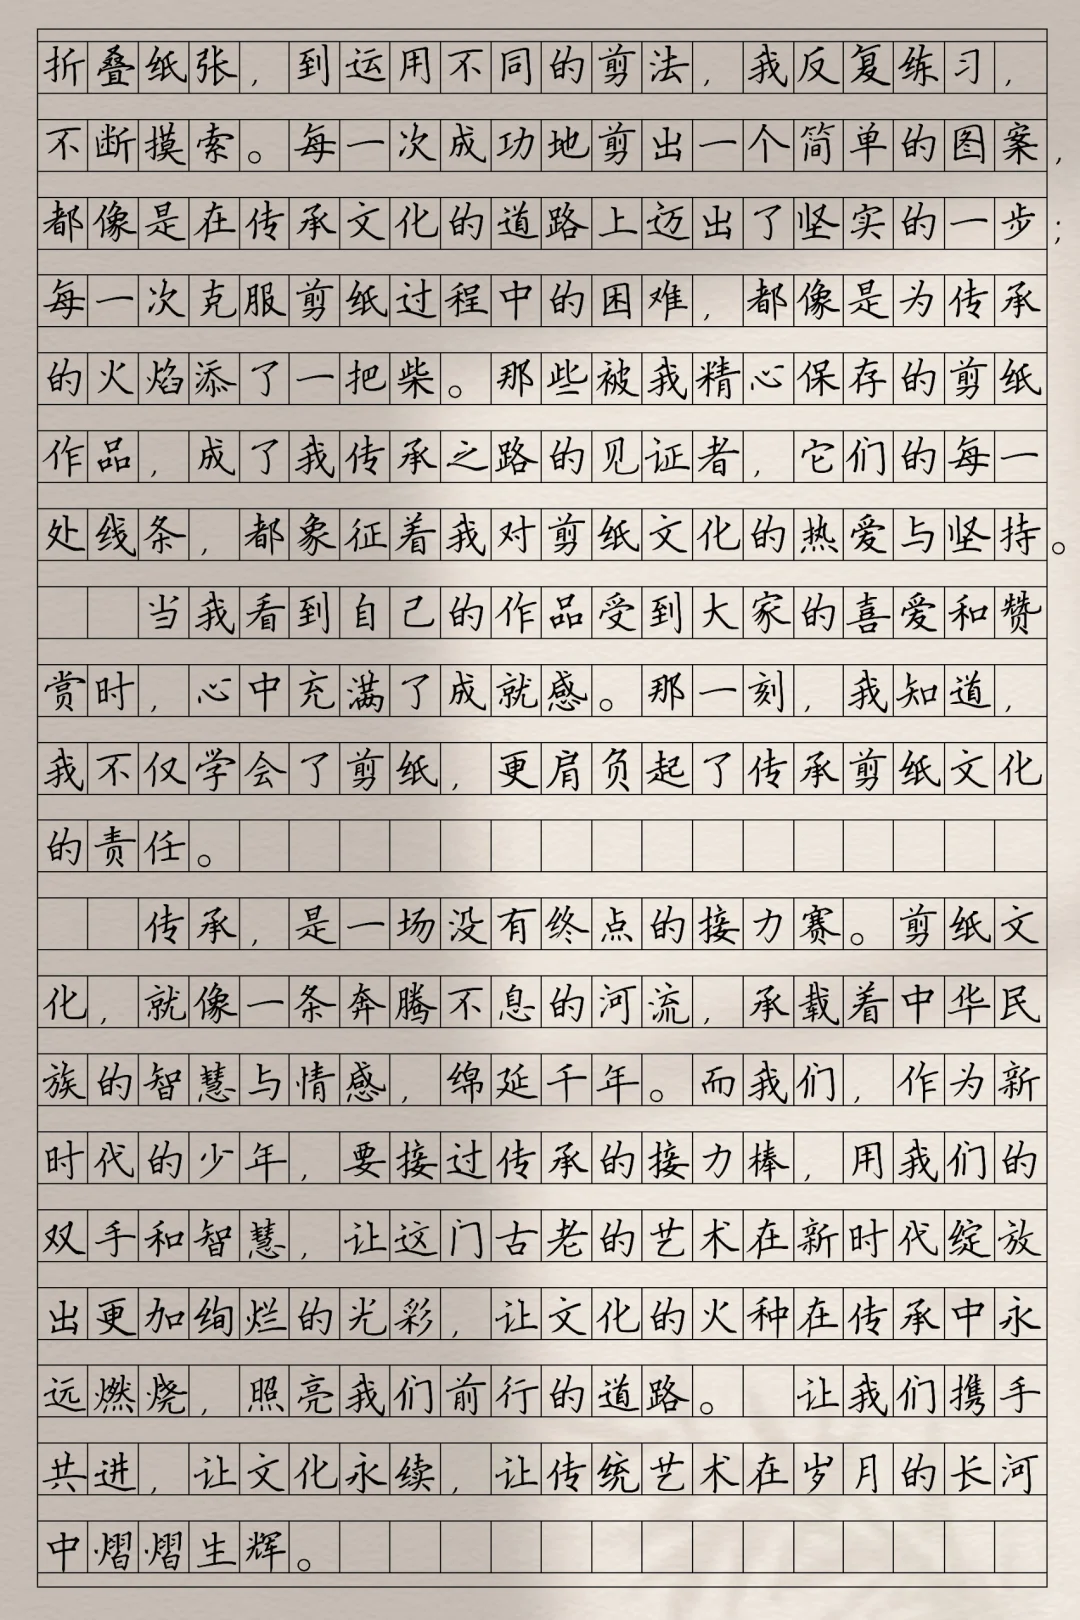 折叠纸张，到运用不同的剪法，我反复练习，
不断摸索。每一次成功地剪出一个简单的图案，
都像是在传承文化的道路上迈出了坚实的一步；
每一次克服剪纸过程中的困难，都像是为传承
的火焰添了一把柴。那些被我精心保存的剪纸
作品，成了我传承之路的见证者，它们的每一
处线条，都象征着我对剪纸文化的热爱与坚持。
当我看到自己的作品受到大家的喜爱和赞
赏时，心中充满了成就感。那一刻，我知道，
我不仅学会了剪纸，更肩负起了传承剪纸文化
的责任。
传承，是一场没有终点的接力赛。剪纸文
化，就像一条奔腾不息的河流，承载着中华民
族的智慧与情感，绵延千年。而我们，作为新
时代的少年，要接过传承的接力棒，用我们的
双手和智慧，让这门古老的艺术在新时代绽放
出更加绚烂的光彩，让文化的火种在传承中永
远燃烧，照亮我们前行的道路。 让我们携手
共进，让文化永续，让传统艺术在岁月的长河
中熠熠生辉。